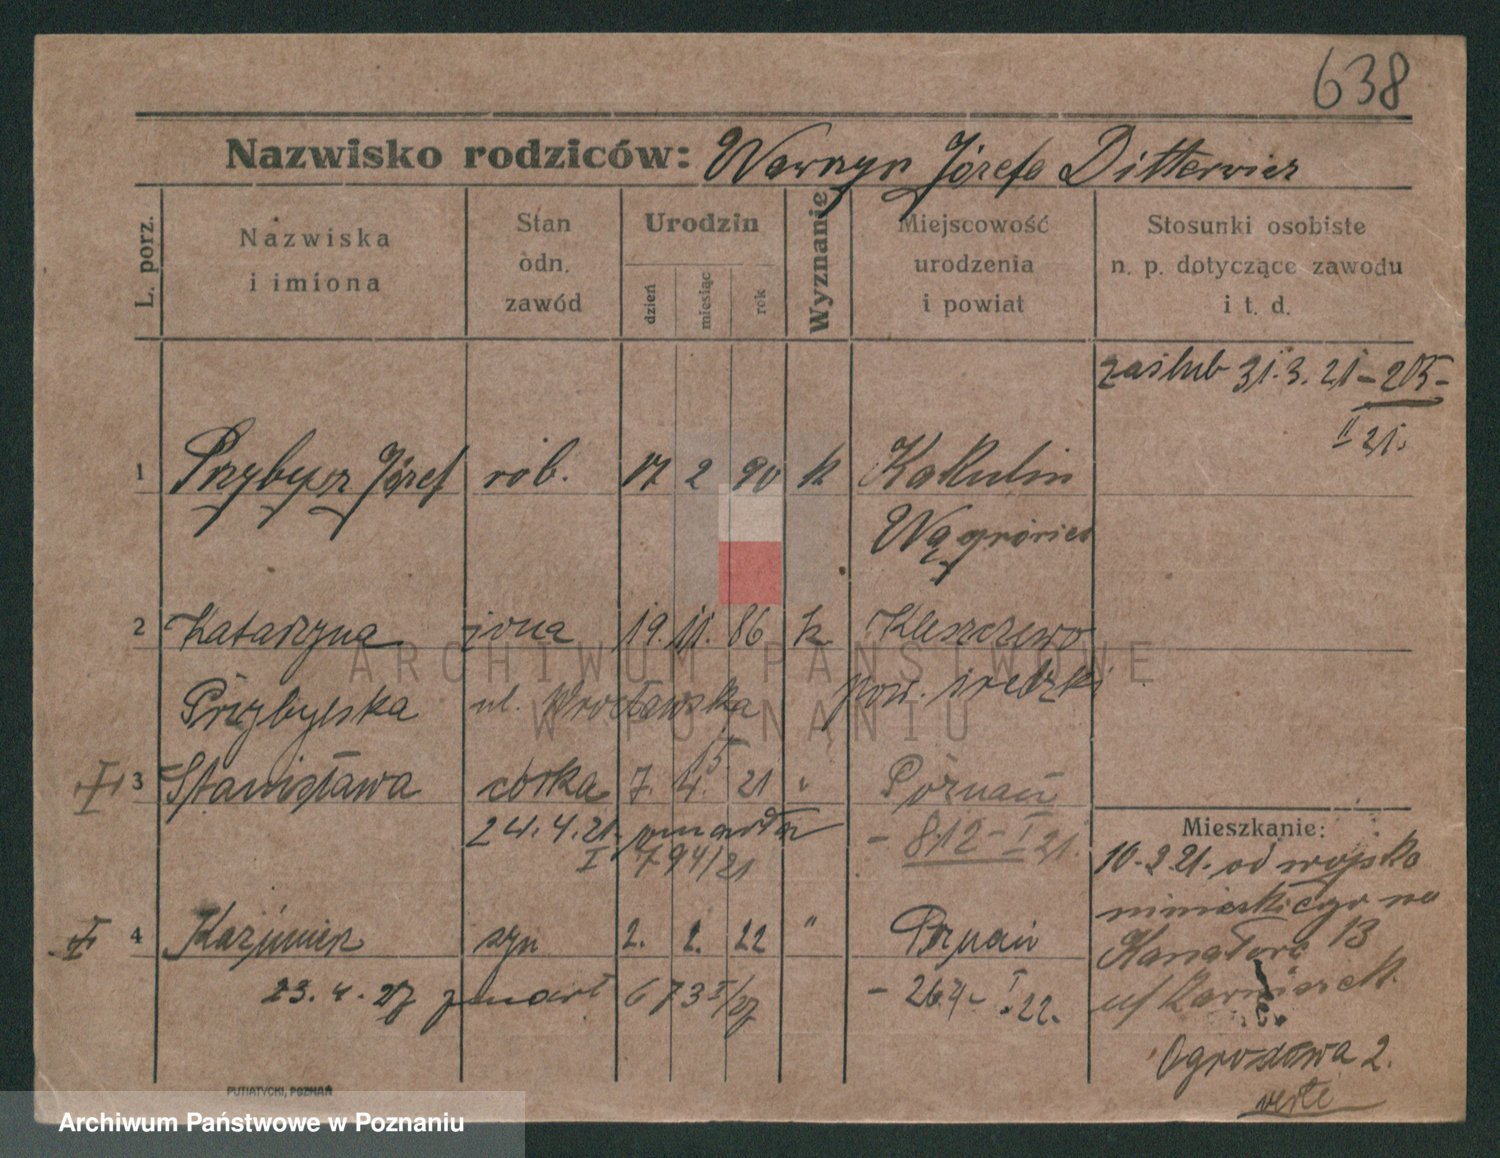 638
Nazwisko rodziców: Wawrzyn Józefa Ditterwicz
L. porz.
Nazwiska
i imiona
Stan
odn.
zawód
Urodzin
dzień
miesiąc
rok
Wyznanie
Miejscowość
urodzenia
i powiat
Stosunki osobiste
n. p. dotyczące zawodu
i t. d.
zaślub 31.3.21 - 205 -
II 21.
1 Przybysz Józef rob. 17 2 90 k Kakulin
Wągrowiec
2 Katarzyna żona 19. 11. 86 k Kleszczewo
Przybylska ul. Wrocławska pow. średzki
3 Stanisława córka 7. 4. 21 " Poznań
24.4.21. zmarła - 812 - I 21.
I 794/21
Mieszkanie:
10.3.21. od wojska
niemieckiego na
Kanałowa 13
4 Kazimierz syn 2. 2. 22 " Poznań
23.4.27 zmarł 673 I/27 - 264 - I 22.
u/
Ogrodowa 2.
PUTIATYCKI, POZNAŃ
ARCHIWUM PAŃSTWOWE
W POZNANIU
Archiwum Państwowe w Poznaniu